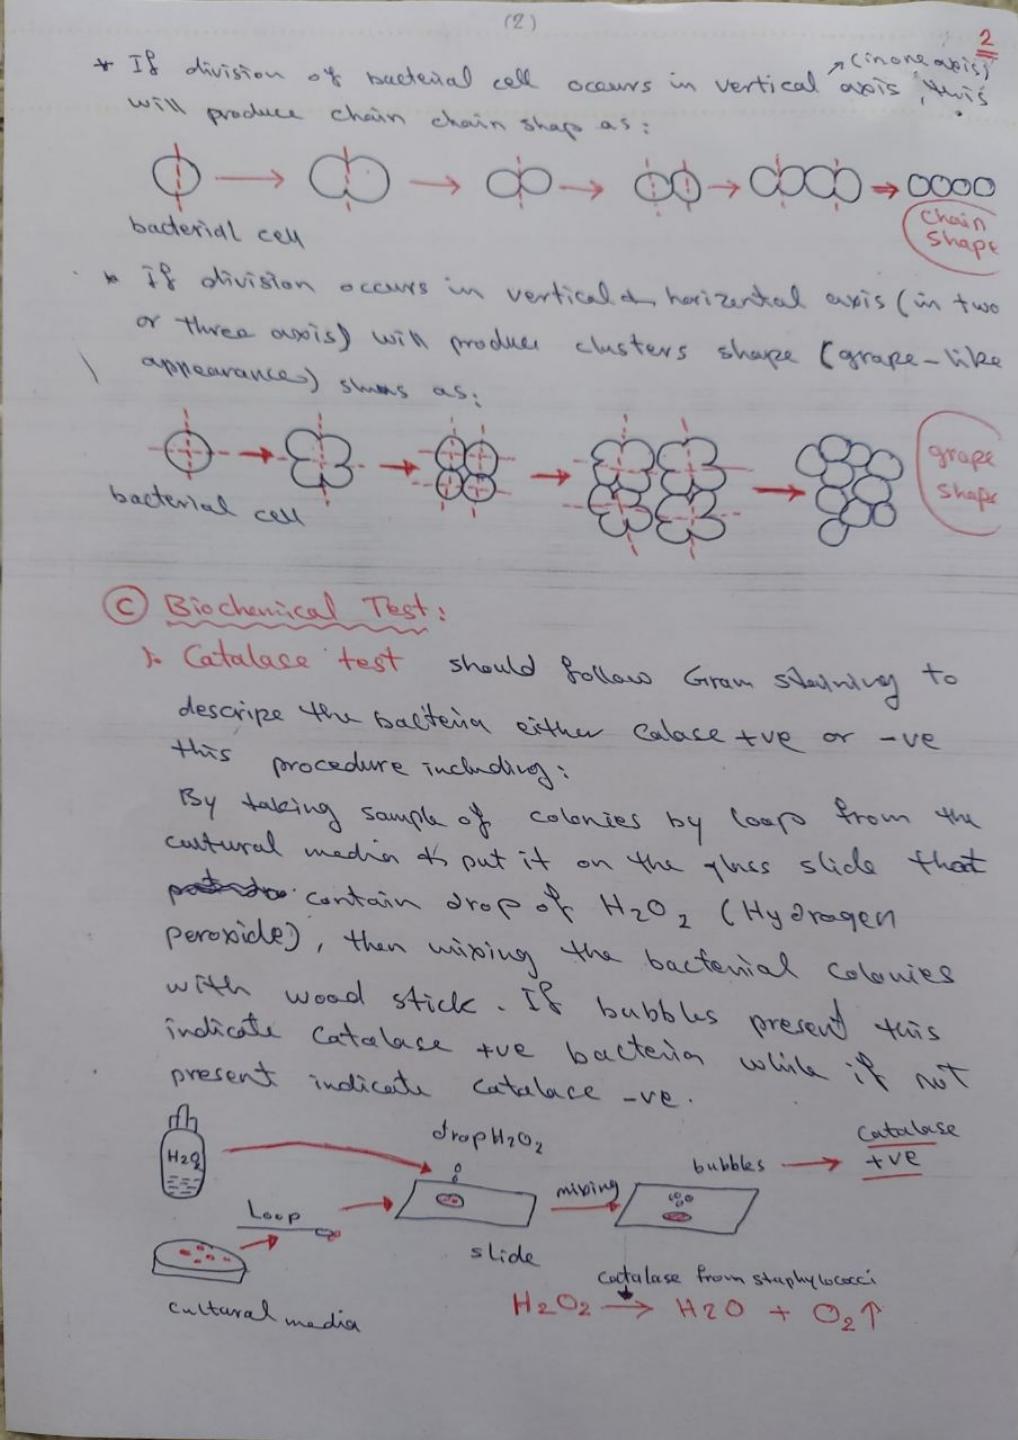 (2)
2
* If division of bacterial cell occurs in vertical axis (in one axis), this
will produce chain chain shap as:
bacterial cell
chain
shape
* if division occurs in vertical & horizental axis (in two
or three axis) will produce clusters shape (grape-like
appearance) as:
bacterial cell
grape
shape
C Biochemical Test:
1. Catalase test should follow Gram staining to
descripe the bacteria either Calase +ve or -ve
this procedure including:
By taking sample of colonies by loop from the
cultural media & put it on the glass slide that
contain drop of H2O2 (Hydrogen
peroxide), then mixing the bacterial colonies
with wood stick. If bubbles present this
indicate Catalase +ve bacteria while if not
present indicate catalace -ve.
H2O2
drop H2O2
Loop
mixing
bubbles
Catalase
+ve
slide
cultural media
catalase from staphylococci
H2O2 → H2O + O2↑